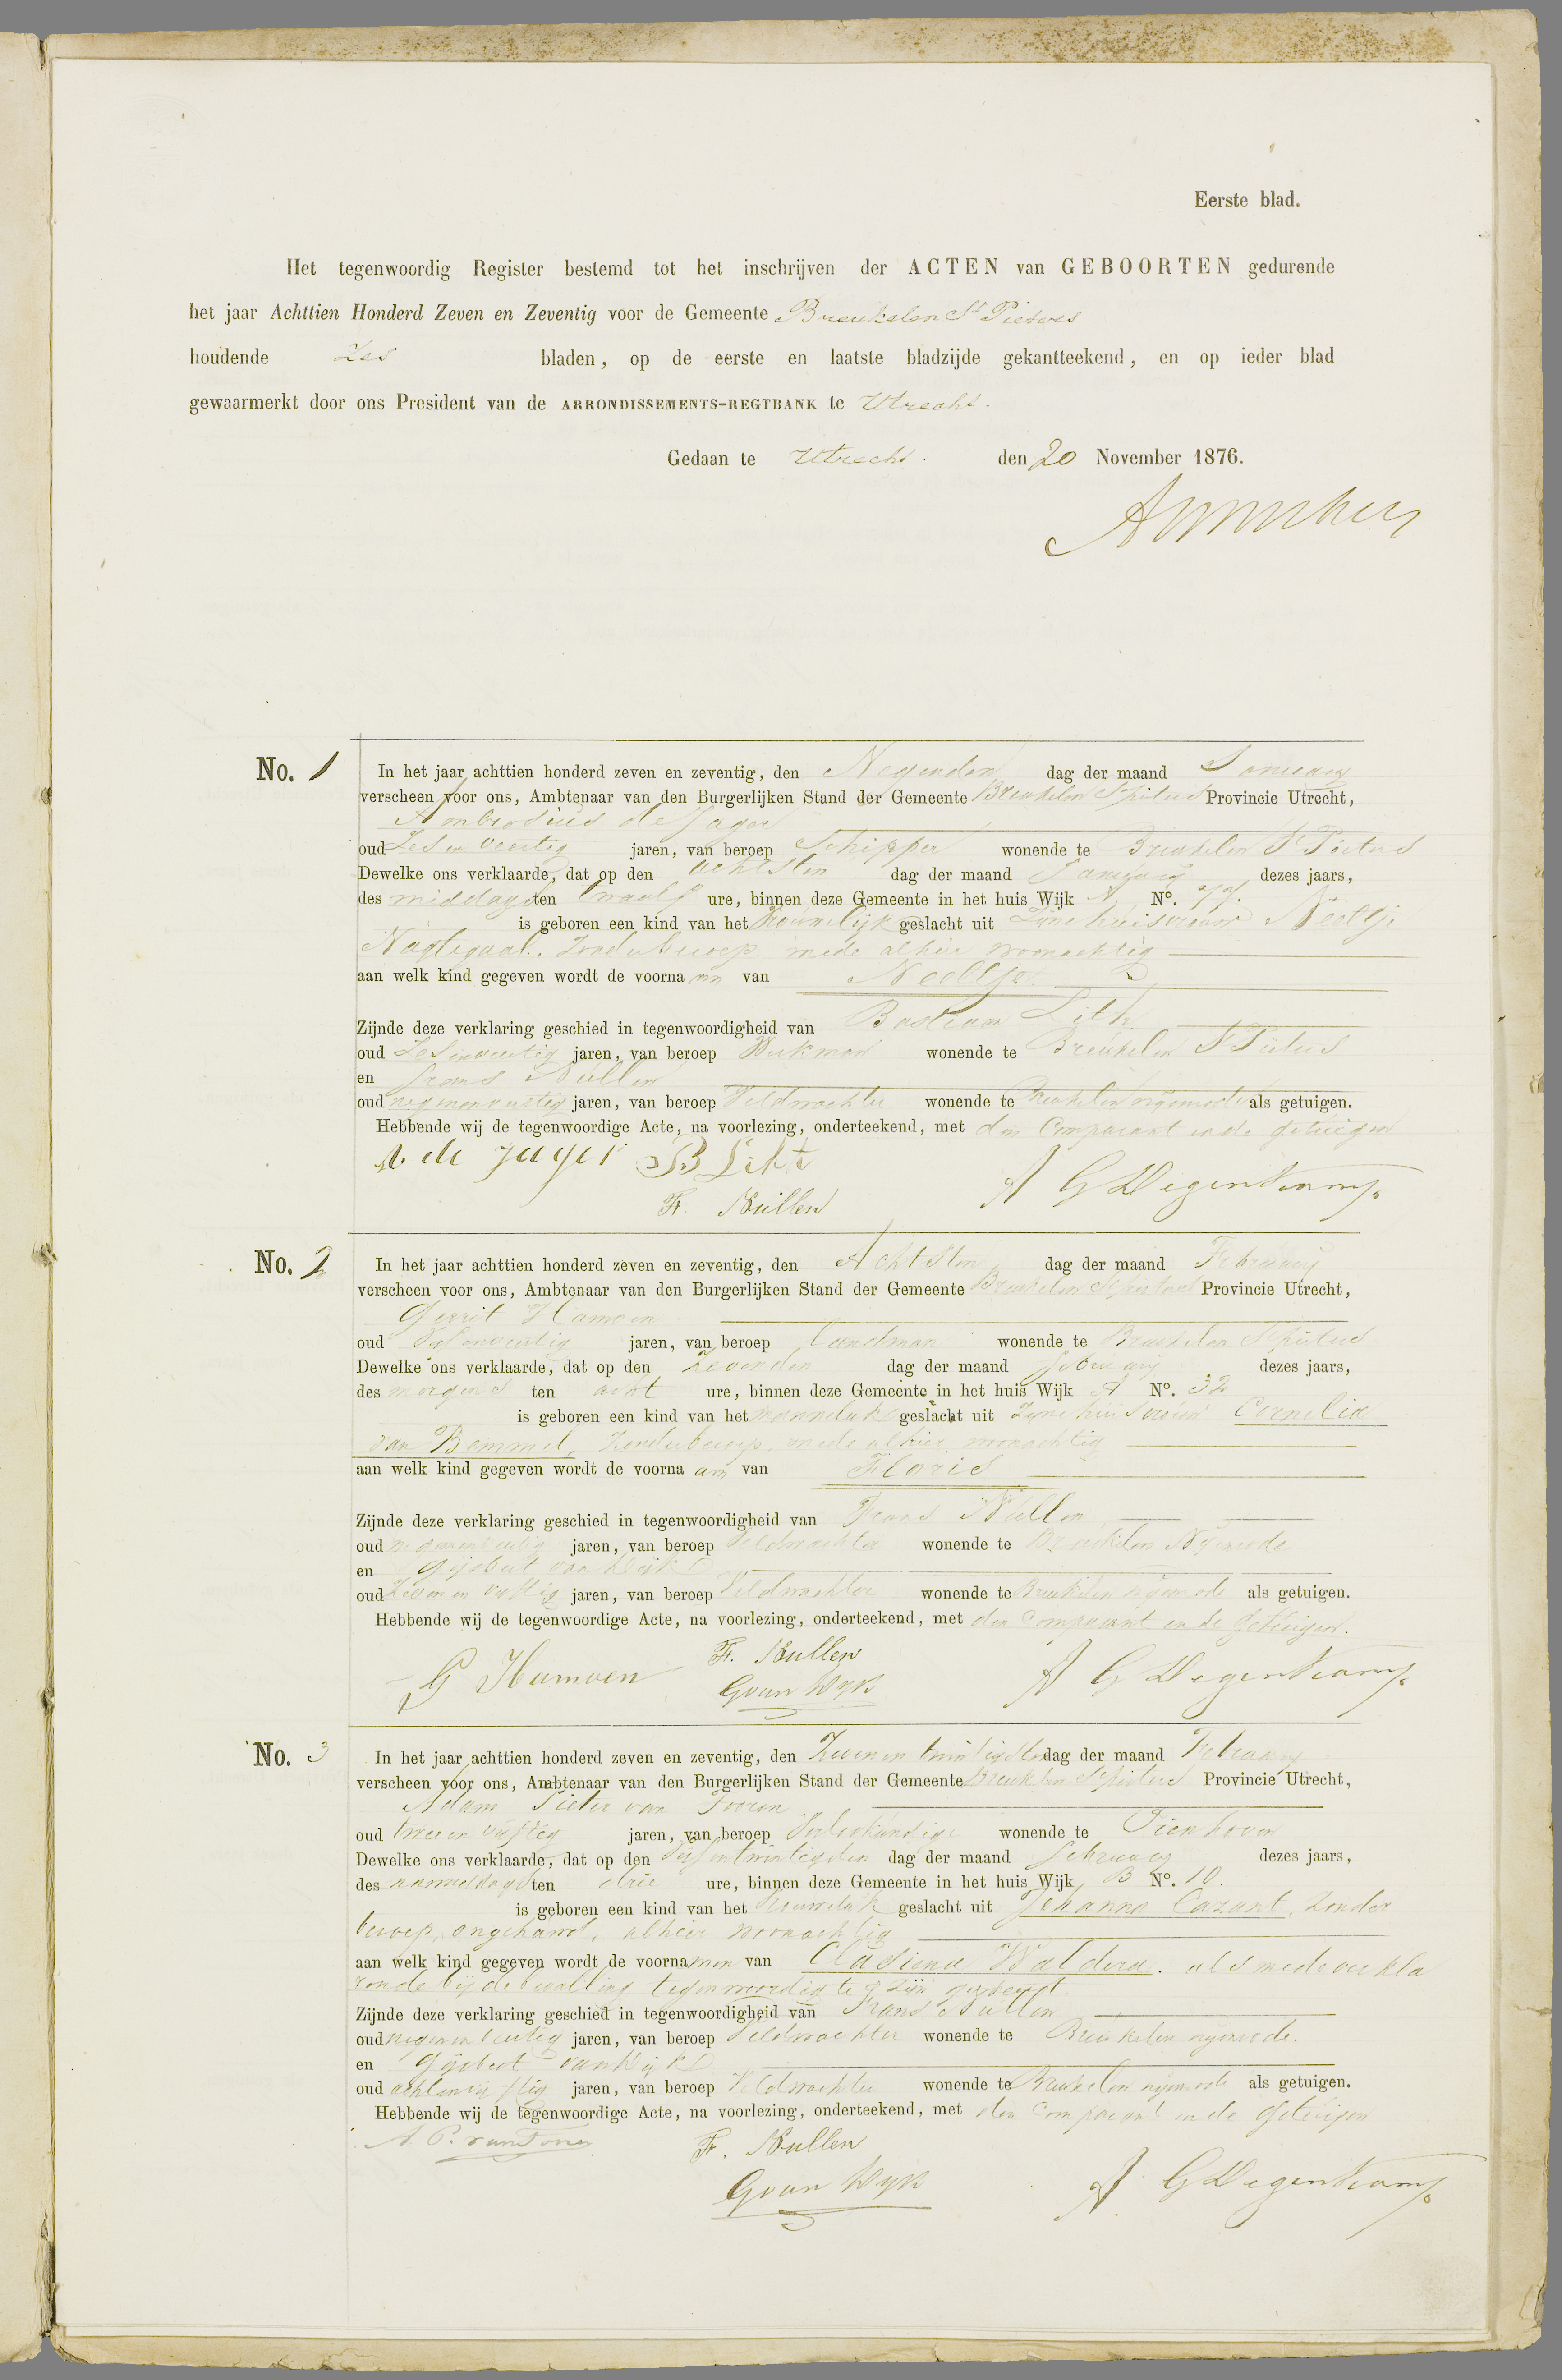 Eerste blad.
Het tegenwoordig Register bestemd tot het inschrijven der ACTEN van GEBOORTEN gedurende
het jaar Achttien Honderd Zeven en Zeventig voor de Gemeente Breukelen St Pieters
houdende Zes bladen, op de eerste en laatste bladzijde gekantteekend, en op ieder blad
gewaarmerkt door ons President van de ARRONDISSEMENTS-REGTBANK te Utrecht.
Gedaan te Utrecht. den 20 November 1876.
No. 1 In het jaar achttien honderd zeven en zeventig, den Negenden dag der maand Januarij
verscheen voor ons, Ambtenaar van den Burgerlijken Stand der Gemeente Breukelen St Pieters Provincie Utrecht,
Ambrosius de Jager
oud Zes en veertig jaren, van beroep Schipper wonende te Breukelen St Pieters
Dewelke ons verklaarde, dat op den achtsten dag der maand Januarij dezes jaars,
des middags ten twaalf ure, binnen deze Gemeente in het huis Wijk A No.
is geboren een kind van het vrouwelijk geslacht uit Zyne huisvrouw Neeltje
Nagtegaal. Zonder beroep mede alhier woonachtig
aan welk kind gegeven wordt de voornaam van Neeltje
Zijnde deze verklaring geschied in tegenwoordigheid van Bastiaan
oud Zesenveertig jaren, van beroep wonende te Breukelen St Pieters
en Frans Nullen
oud negenenveertig jaren, van beroep Veldwachter wonende te Breukelen nijenrode als getuigen.
Hebbende wij de tegenwoordige Acte, na voorlezing, onderteekend, met den Comparant en de getuigen
A. de Jager B
F. Nullen A G Degenkamp
No. 2 In het jaar achttien honderd zeven en zeventig, den Achtsten dag der maand Februarij
verscheen voor ons, Ambtenaar van den Burgerlijken Stand der Gemeente Breukelen St Pieters Provincie Utrecht,
Gerrit Hamoen
oud Vijfenveertig jaren, van beroep Landman wonende te Breukelen St Pieters
Dewelke ons verklaarde, dat op den Zevenden dag der maand februarij dezes jaars,
des morgens ten acht ure, binnen deze Gemeente in het huis Wijk A No. 32
is geboren een kind van het mannelijk geslacht uit Zyne huisvrouw Cornelia
van Bemmel, Zonder beroep, mede alhier woonachtig
aan welk kind gegeven wordt de voornaam van Floris
Zijnde deze verklaring geschied in tegenwoordigheid van Frans Nullen
oud negenenveertig jaren, van beroep Veldwachter wonende te Breukelen Nijenrode
en Gijsbert van Wijk
oud Zeven en vijftig jaren, van beroep Veldwachter wonende te Breukelen nijenrode als getuigen.
Hebbende wij de tegenwoordige Acte, na voorlezing, onderteekend, met den Comparant en de getuigen.
G Hamoen F. Nullen
G van Wyk A G Degenkamp
No. 3 In het jaar achttien honderd zeven en zeventig, den Zeven en twintigsten dag der maand Februarij
verscheen voor ons, Ambtenaar van den Burgerlijken Stand der Gemeente Breukelen St Pieters Provincie Utrecht,
Adam Pieter van
oud twee en vijftig jaren, van beroep Verloskundige wonende te Tienhoven
Dewelke ons verklaarde, dat op den Vijfentwintigsten dag der maand februarij dezes jaars,
des namiddags ten drie ure, binnen deze Gemeente in het huis Wijk B No. 10
is geboren een kind van het vrouwelijk geslacht uit Johanna Cazant, Zonder
beroep, ongehuwd, alhier woonachtig
aan welk kind gegeven wordt de voornamen van Clasiena Waldera.
zende bij de bevalling tegenwoordig te zijn geweest.
Zijnde deze verklaring geschied in tegenwoordigheid van Frans Nullen
oud negen en veertig jaren, van beroep Veldwachter wonende te Breukelen nijenrode.
en Gijsbert van Wijk
oud achtenvijftig jaren, van beroep Veldwachter wonende te Breukelen nijenrode als getuigen.
Hebbende wij de tegenwoordige Acte, na voorlezing, onderteekend, met den Comparant en de getuigen
F. Nullen
G van Wyk A G Degenkamp